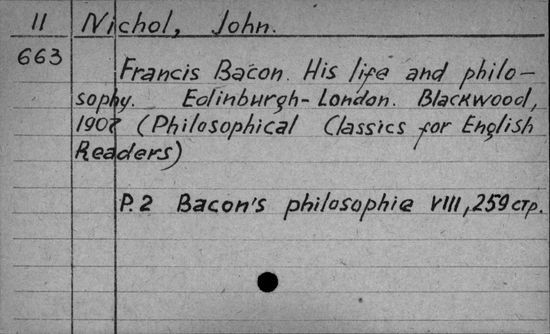 II Nichol, John.
663
Francis Bacon. His life and philo-
sophy. Edinburgh-London. Blackwood,
1907 (Philosophical Classics for English
Readers)
P.2 Bacon's philosophie VIII, 259 стр.